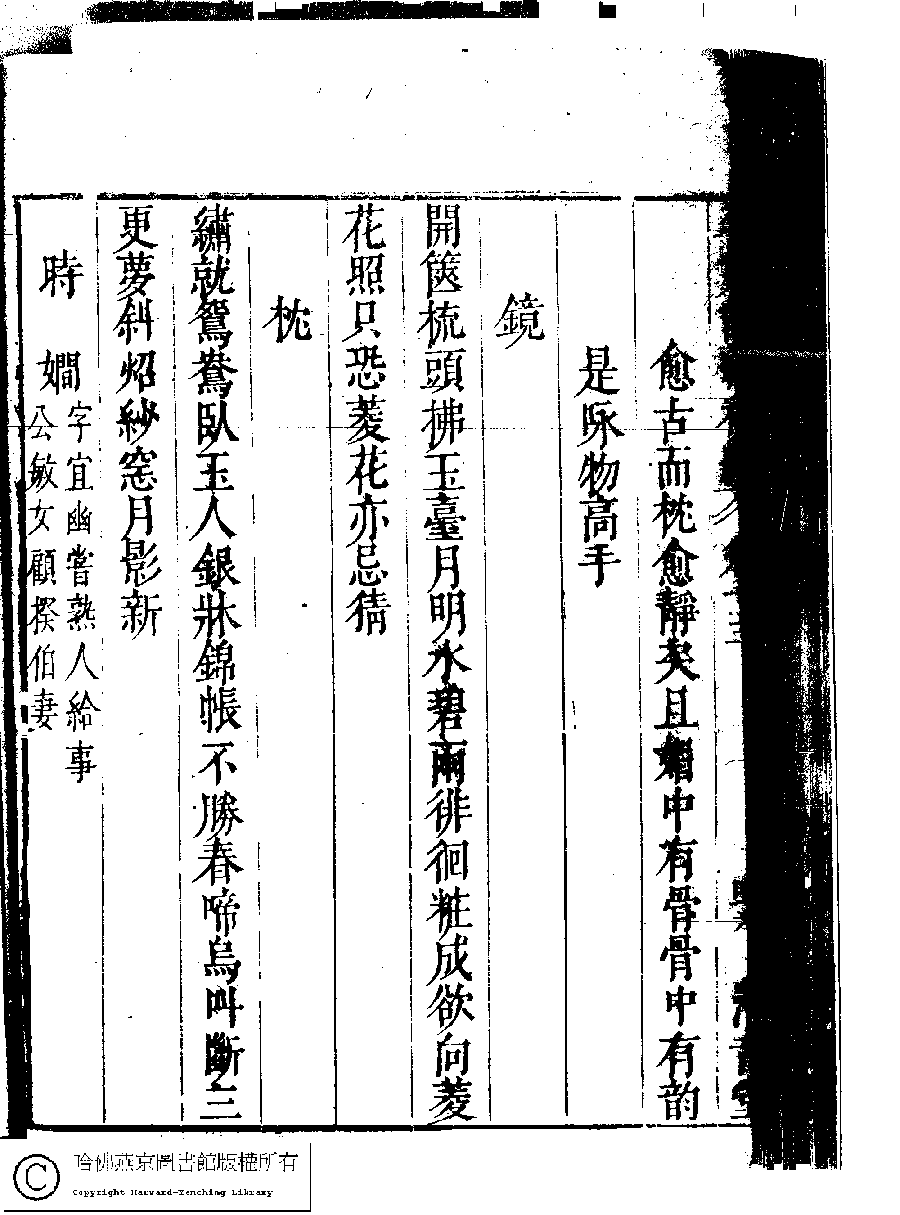 愈古而枕愈靜矣且媚中有骨骨中有韵
是咏物高手
鏡
開篋梳頭拂玉臺月明氷碧兩徘徊粧成欲向菱
花照只恐菱花亦忌猜
枕
繡就鴛鴦臥玉人銀牀錦帳不勝春啼烏叫斷三
更夢斜炤紗窓月影新
時嫺
字宜幽嘗熟人給事
公敏女顧揆伯妻
哈佛燕京圖書館版權所有
Copyright Harvard-Yenching Library